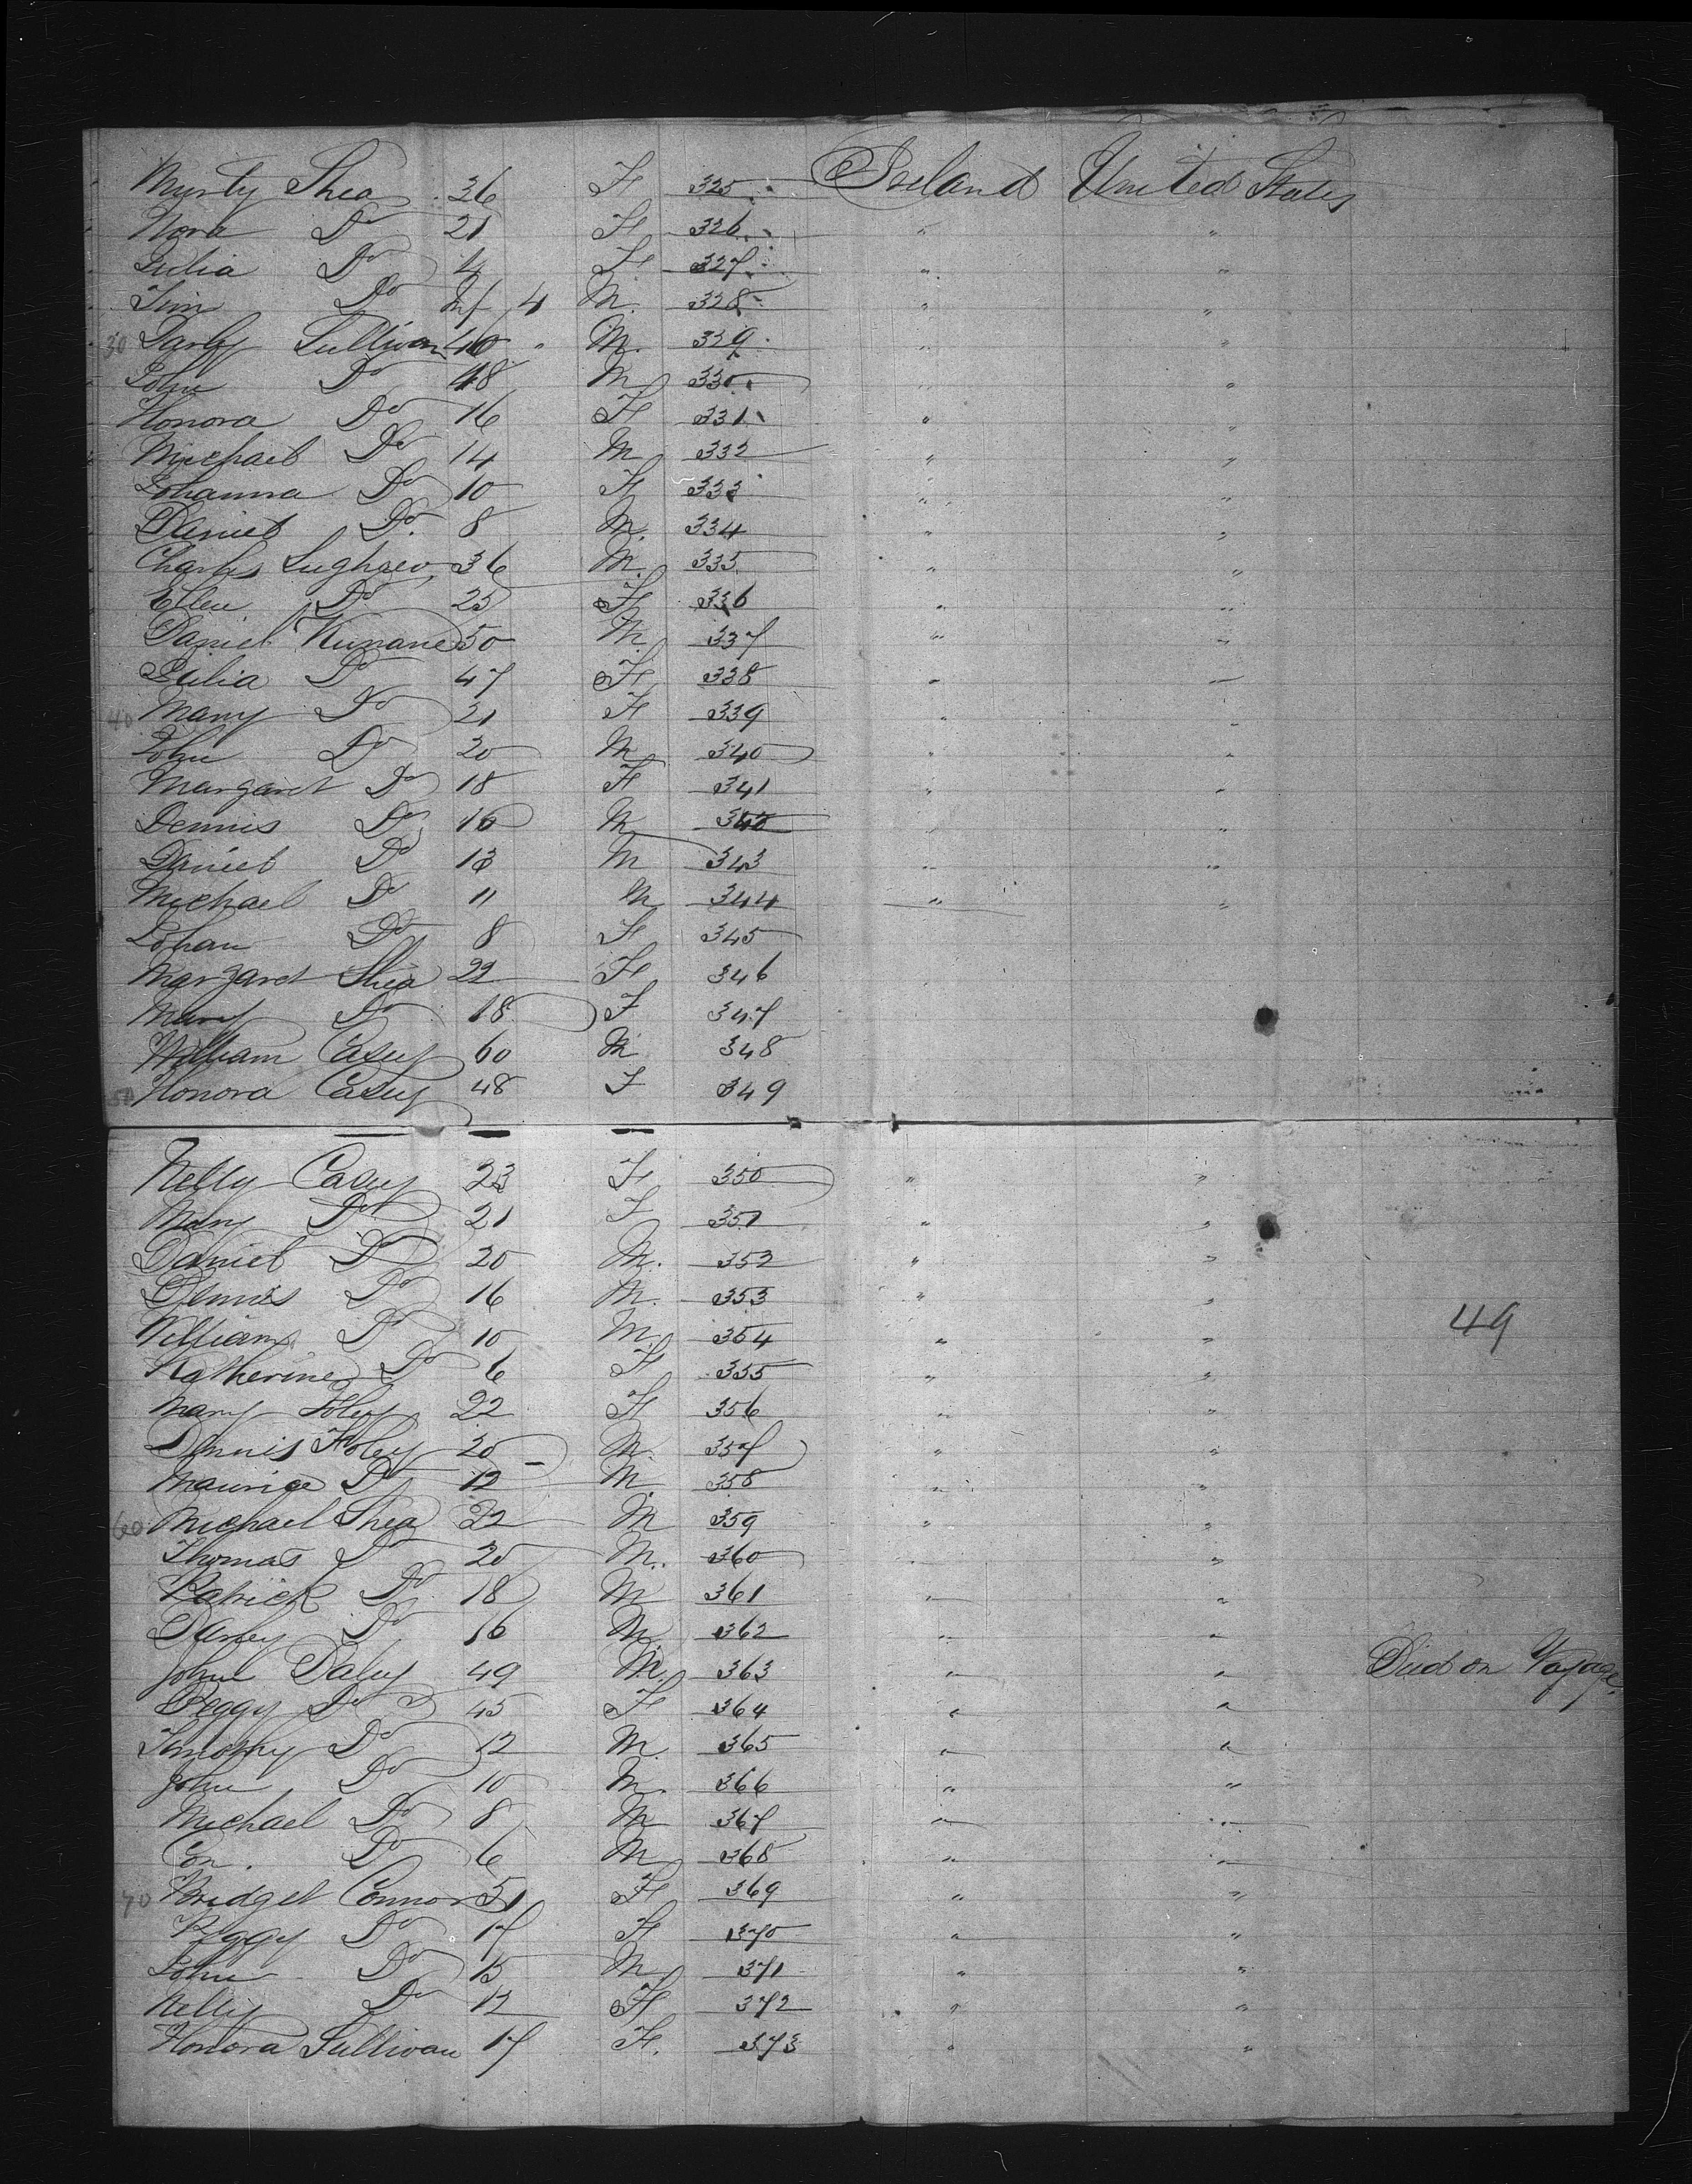 Murty Shea 36 F 325 Ireland United States
Nora Do 21 F 326 " "
Julia Do 4 F 327 " "
Tim Do 4 M 328 " "
30 Darby Sullivan 40 " M. 329 " "
John Do 48 M 330 " "
Honora Do 16 F 331 " "
Michael Do 14 M 332 " "
Johanna Do 10 F 333 " "
Daniel Do. 8 M. 334 " "
Charles 36 M. 335 " "
Ellen Do 25 F 336 " "
Daniel 50 M 337 " "
Julia Do 47 F 338 " "
40 Mary Do 21 F 339 " "
John Do 20 M 340 " "
Margaret Do 18 F 341 " "
Dennis Do 16 M " "
Daniel Do 13 M 343 " "
Michael Do 11 M 344 " "
Johan Do 8 F 345
Margaret Shea 22 F 346
Mary Do 18 F 347
William Casey 60 M 348
50 Honora Casey 48 F 349
Nelly Casey 23 F 350 " "
Mary Do 21 F 351 " "
Daniel Do 20 M. 352 " "
Dennis Do 16 M. 353 " "
49
William Do 10 M. 354 " "
Katherine Do 6 F 355 " "
Mary Foley 22 F 356 " "
Dennis Foley 20 M 357 " "
Maurice Do 12 M 358 " "
60 Michael Shea 22 M 359 " "
Thomas Do 20 M. 360 " "
Patrick Do 18 M 361 " "
Darby Do 16 M 362 " "
John Daley 49 M. 363 " " Died on Voyage.
Peggy Do 45 F 364 " "
Timothy Do 12 M. 365 " "
John Do 10 M. 366 " "
Michael Do 8 M 367 " "
Con. Do 6 M 368 " "
70 Bridget Connor 51 F 369 " "
Peggy Do 17 F 370 " "
John Do 15 M 371 " "
Nelly Do 12 F 372 " "
Honora Sullivan 17 F. 373 " "